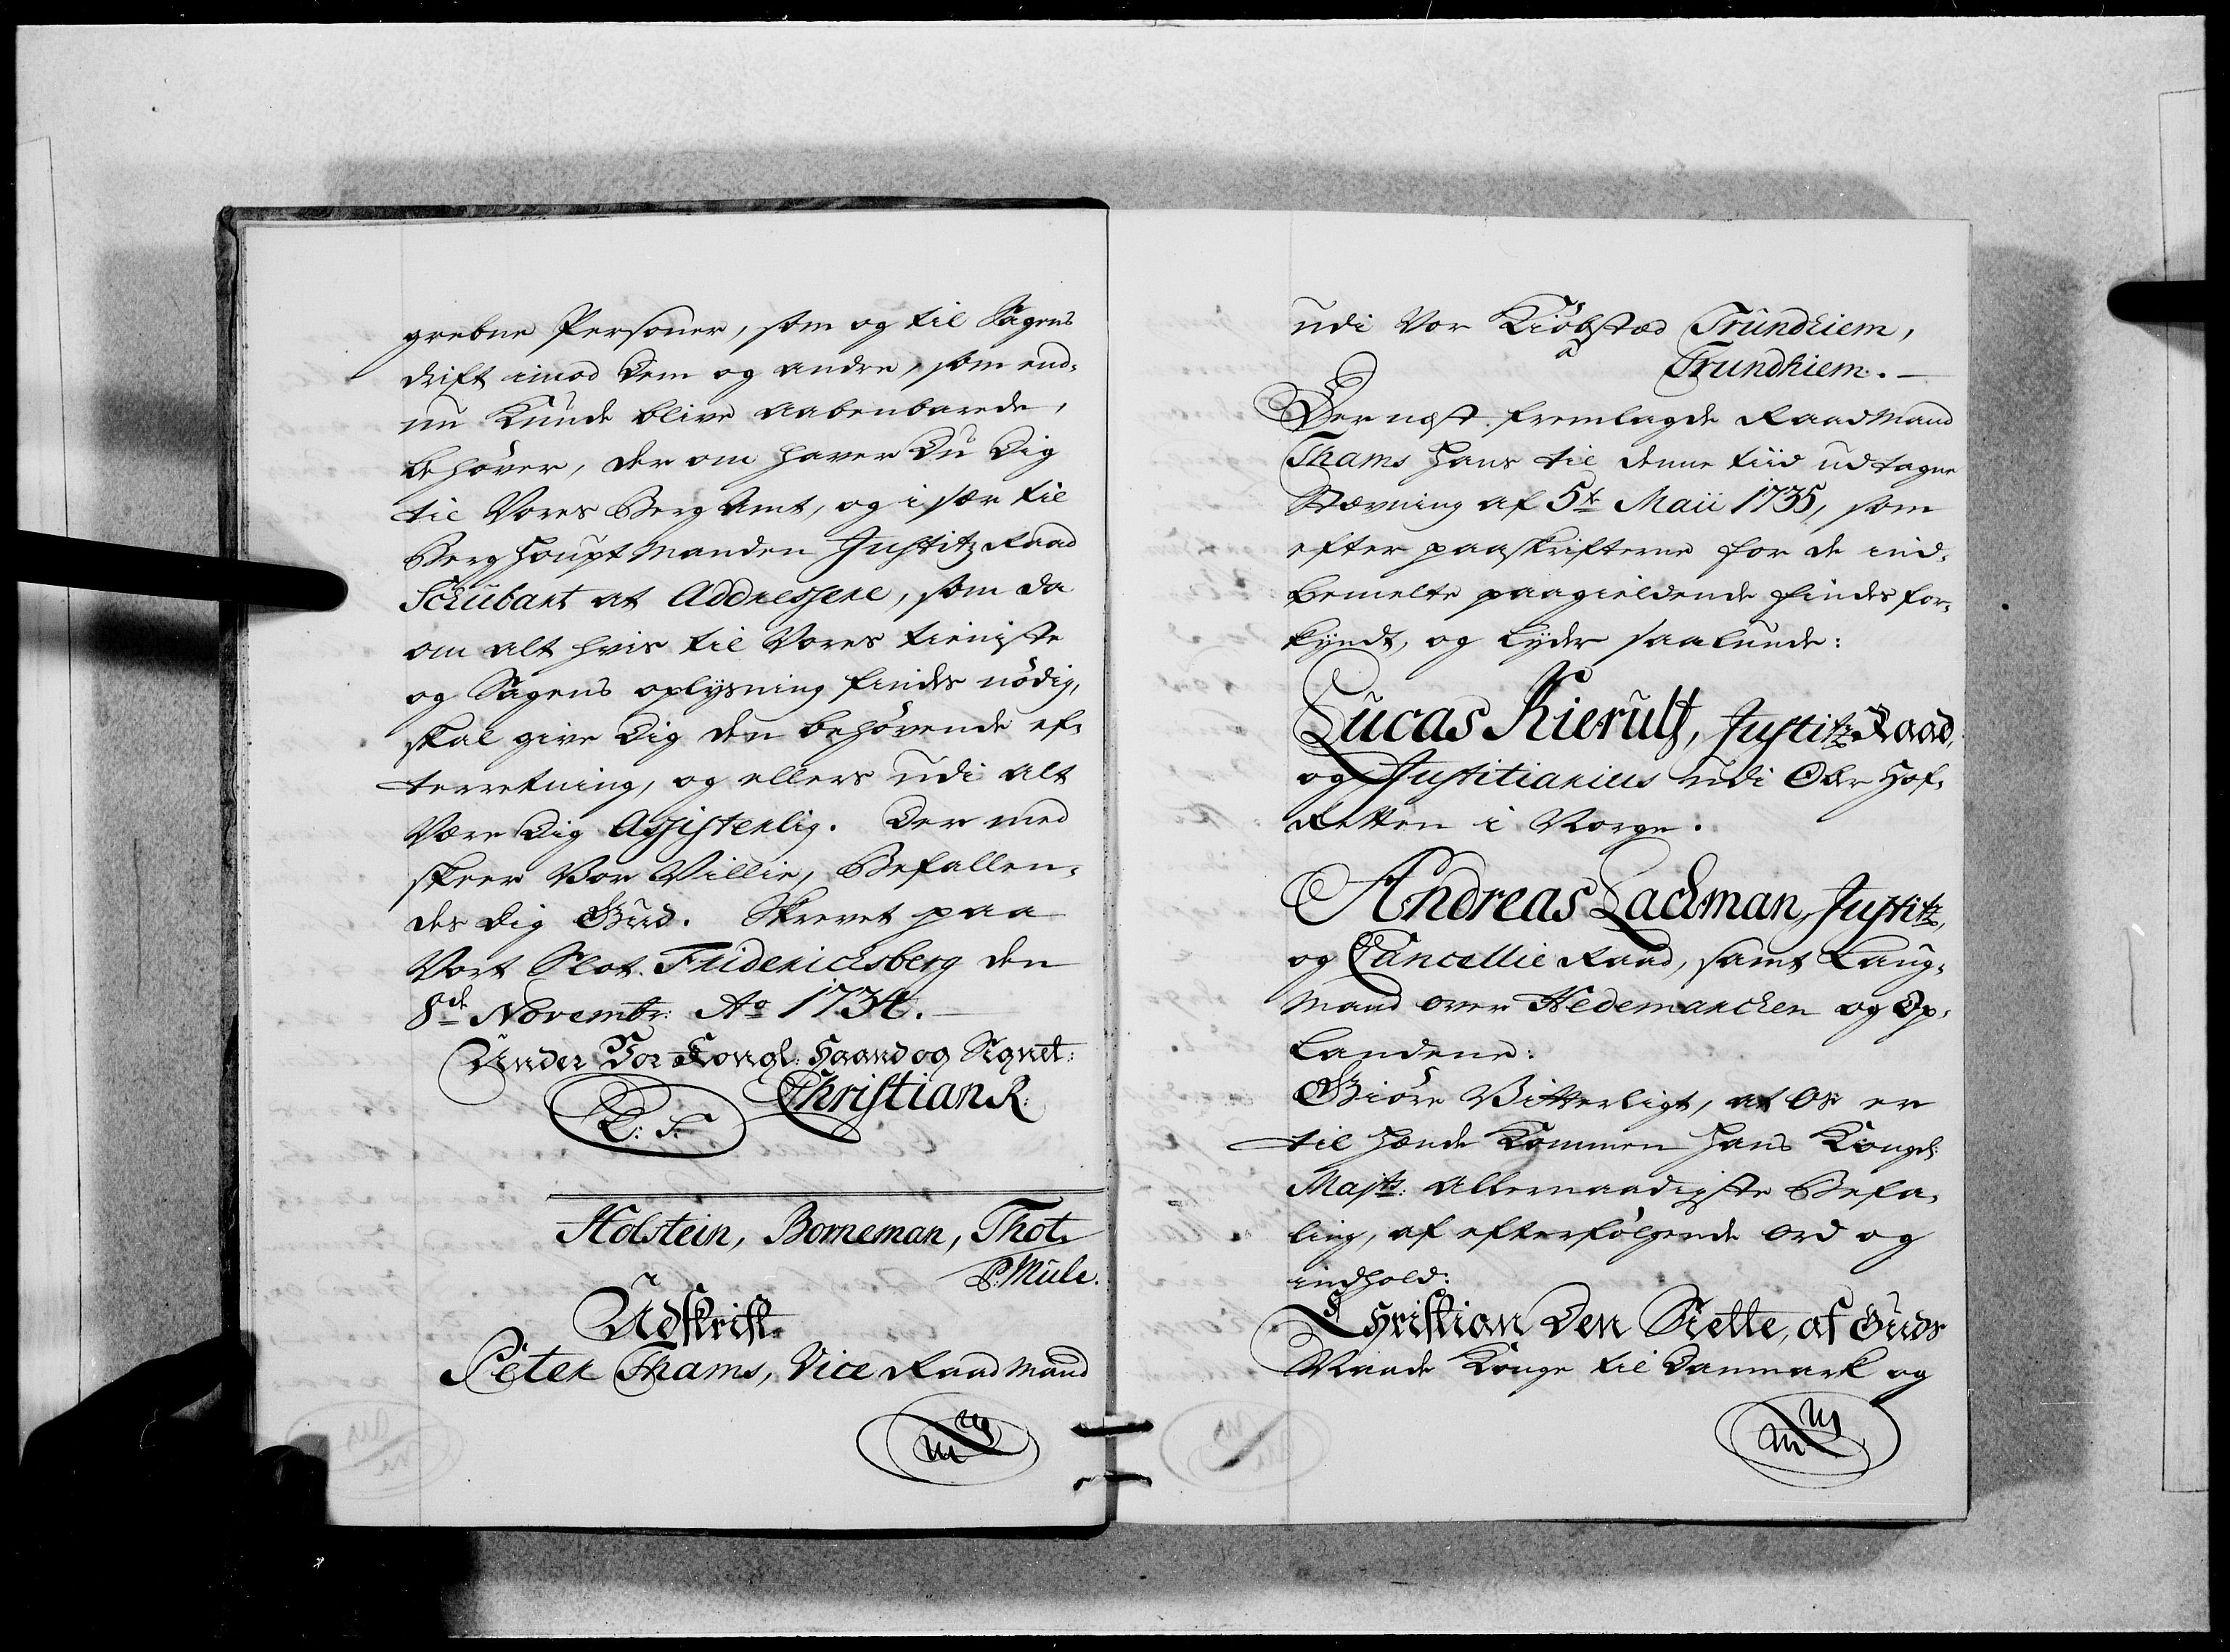 grebne Personer, som og til Sagens
drift imod dem og andre, som end-
nu Kunde blive aabenbarede,
behøver, der om haver Du Dig
til Vores Berg Amt, og i sær til
Berg Houptmanden Justitz Raad
Schubart at Addressere, som da
om alt hvis til Vores tieniste
og Sagens oplysning findes nödig,
skal give Dig den behövende ef-
terretning, og ellers udi alt
være Dig Assisterlig. Der med
skeer Vor Villie, Befallen-
des dig Gud. Skrevet paa
Vort Slot Friderichsberg den
8de Novembr: Ao 1734.
Under Vor Kongl: Haand og Signet:
Christian R.
L: S:
Holstein, Borneman, Thot.
P: Mule.
Udskrift
Peter Thams, Vice Raadmand
udi Vor Kiöbstæd Trundhiem,
a Trundhiem. -
Der nest fremlagde Raadmand
Thams Hans til denne tiid udtagne
Stævning af 5te Maii 1735, som
efter paaskrifterne for de ind-
bemelte paagieldende findes for-
kyndt, og lyder saalunde:
Lucas Kierulf, Justitz Raad,
og Justitiarius udi Ober Hof-
Retten i Norge.
Andreas Lachman, Justitz,
og Cancellie Raad, samt Laug-
mand over Hedemarchen og Op-
landene:
Giöre Vitterligt, at Os er
til Hænde Kommen Hans Kongel:
Majts: Allernaadigste Befa-
ling, af efterfølgende ord og
indhold:
Christian Den Siette, af Guds
Naade Konge til Danmark og